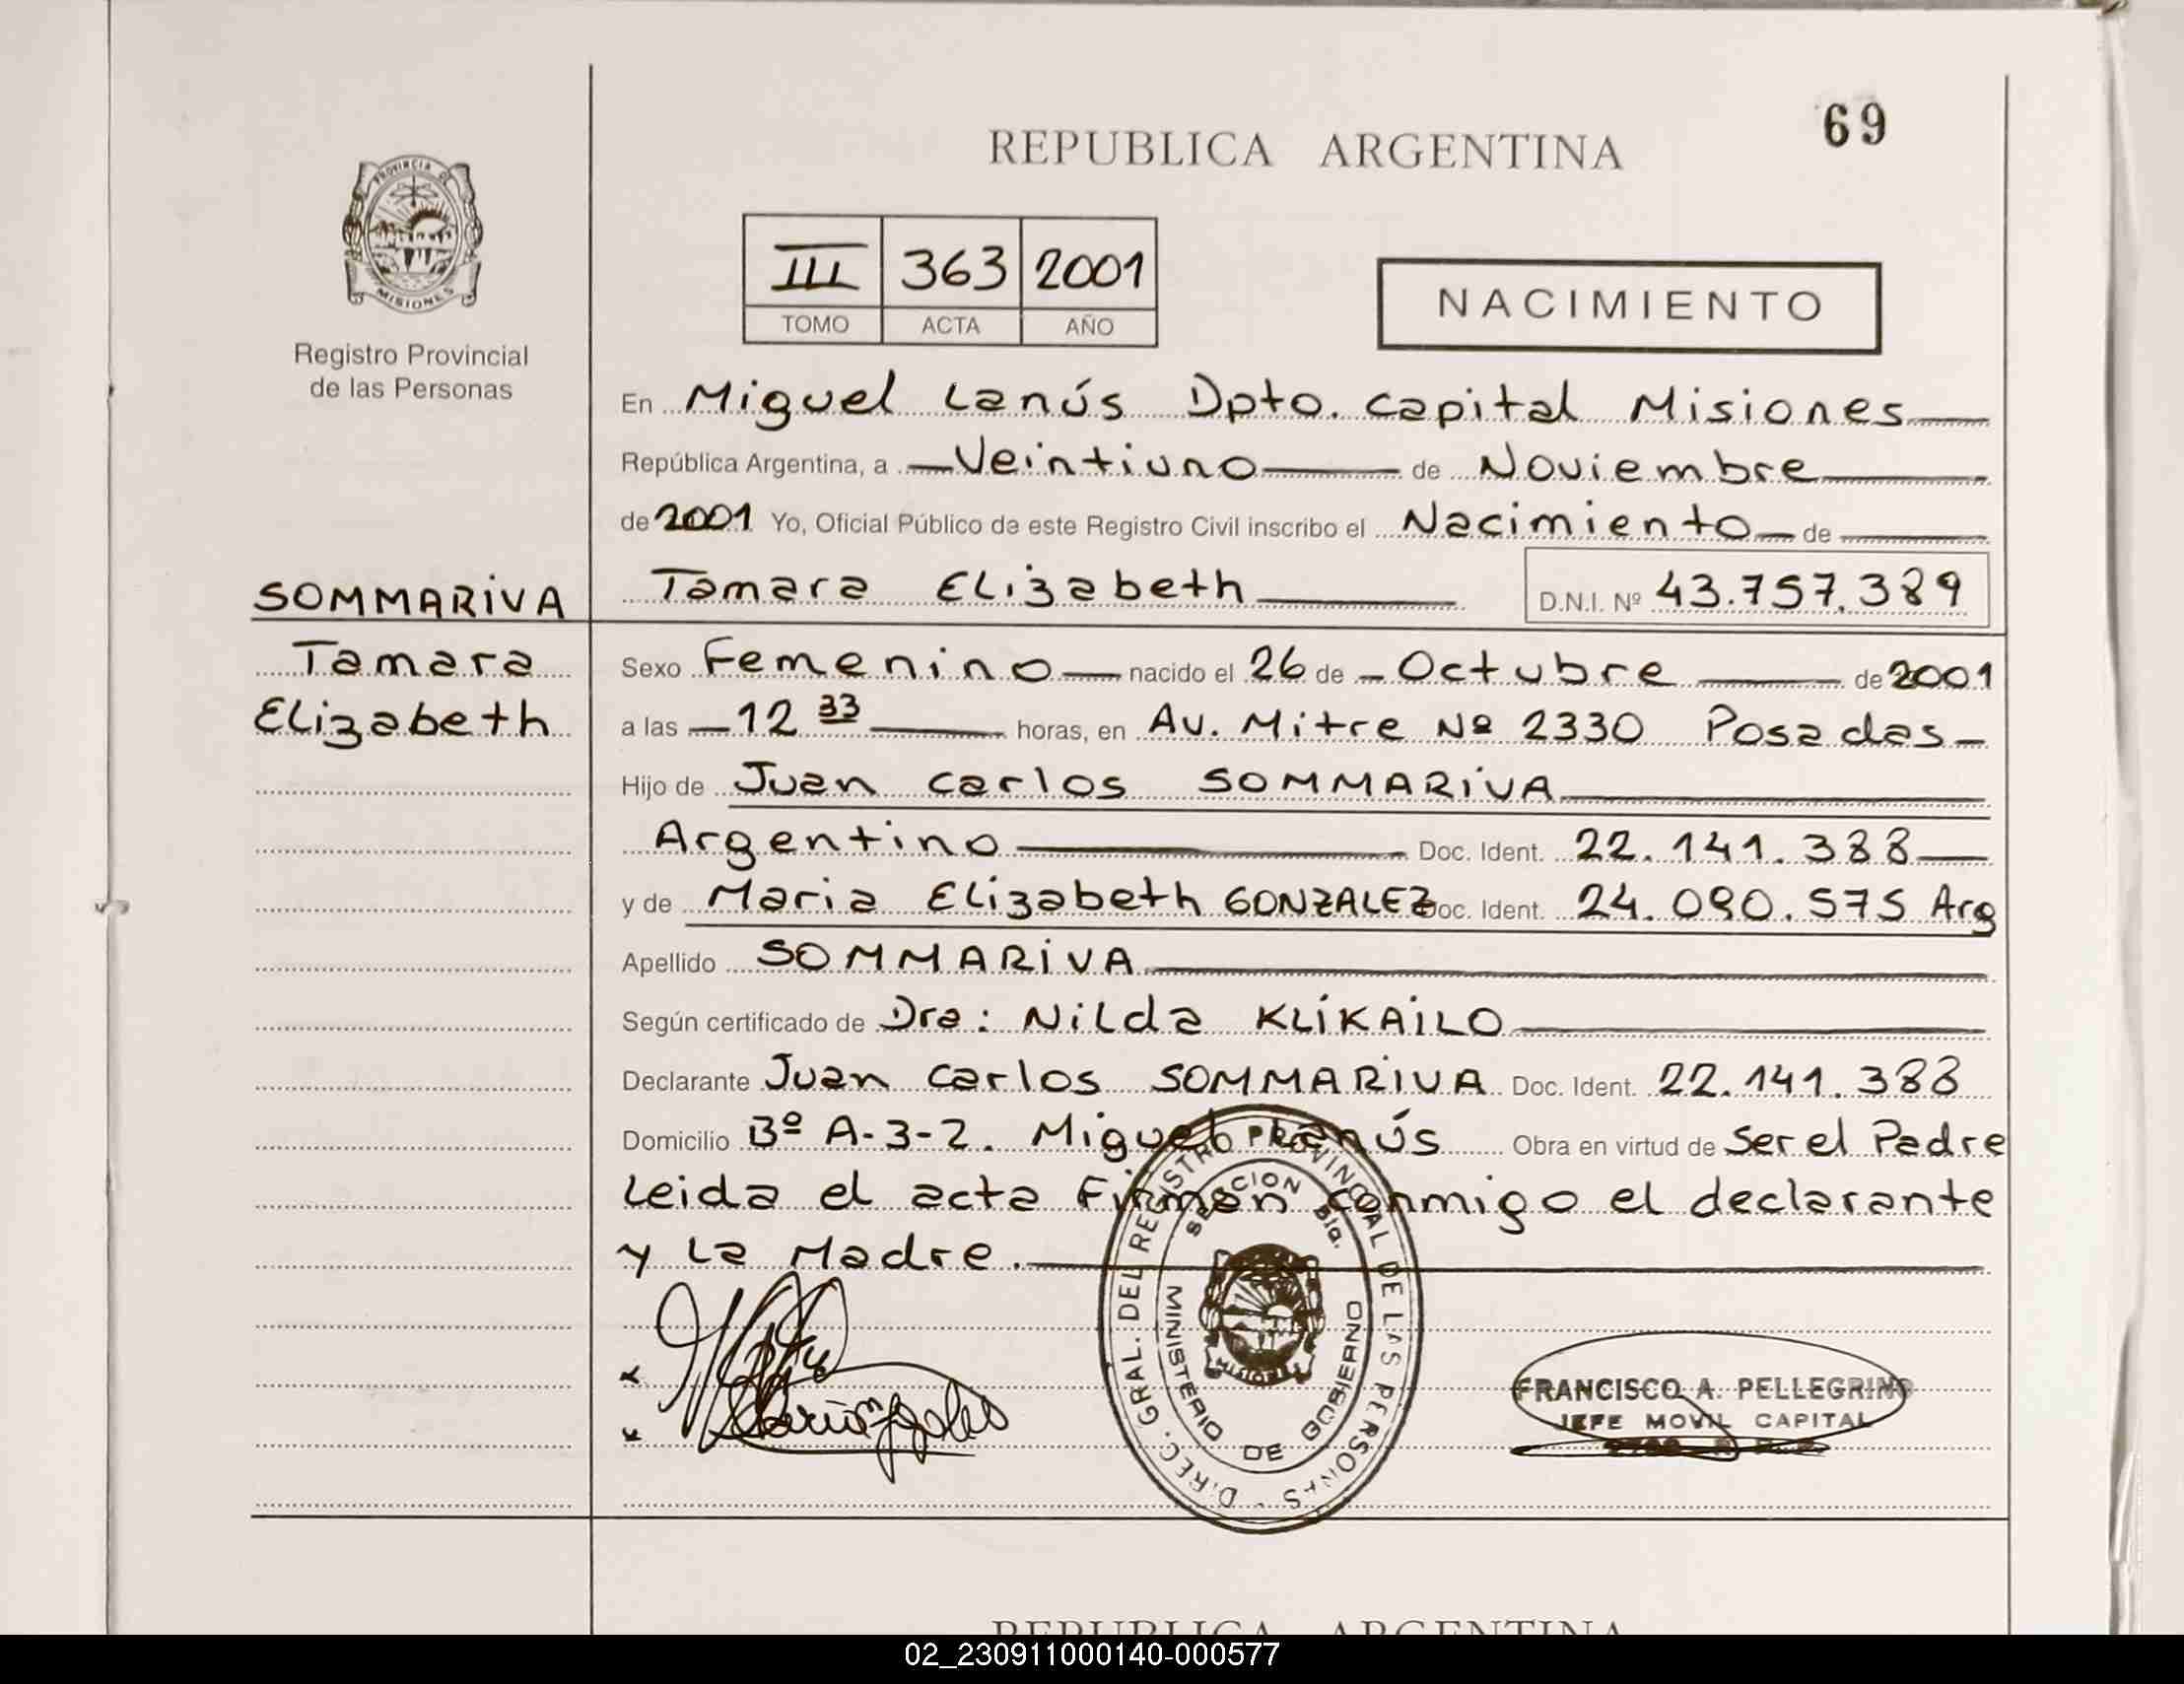 69
REPUBLICA ARGENTINA
PROVINCIA DE
MISIONES
Registro Provincial
de las Personas
III 363 2001
TOMO ACTA AÑO
NACIMIENTO
En Miguel Lanús Dpto. Capital Misiones
República Argentina, a Veintiuno de Noviembre
de 2001 Yo, Oficial Público de este Registro Civil inscribo el Nacimiento de
SOMMARIVA Tamara Elizabeth D.N.I. Nº 43.757.389
Tamara Sexo Femenino nacido el 26 de Octubre de 2001
Elizabeth a las 12 33 horas, en Av. Mitre Nº 2330 Posadas
Hijo de Juan Carlos SOMMARIVA
Argentino Doc. Ident. 22.141.388
y de Maria Elizabeth GONZALEZ Doc. Ident. 24.090.575 Arg
Apellido SOMMARIVA
Según certificado de Dra: Nilda KLIKAILO
Declarante Juan Carlos SOMMARIVA Doc. Ident. 22.141.388
Domicilio Bº A-3-2. Miguel Lanús Obra en virtud de Ser el Padre
Leida el acta Firman conmigo el declarante
y La Madre.
DIREC. GRAL. DEL REGISTRO PROVINCIAL DE LAS PERSONAS
MINISTERIO DE GOBIERNO
MISIONES
FRANCISCO A. PELLEGRINO
JEFE MOVIL CAPITAL
REPUBLICA ARGENTINA
02_230911000140-000577